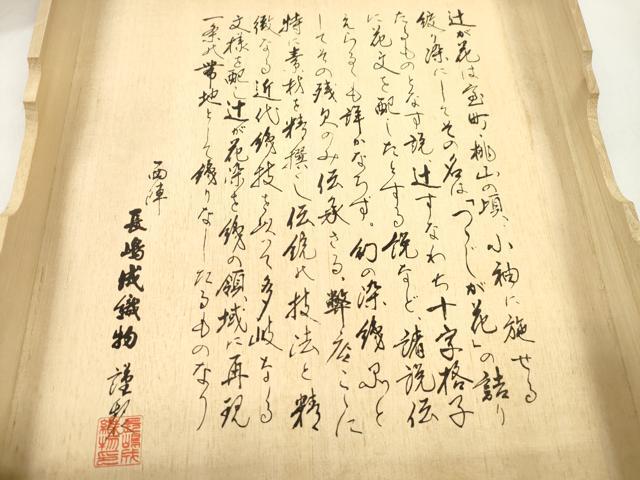 辻が花は室町・桃山の頃、小袖に施せる
絞り染にしてその名は「つつじが花」の詰り
たるものとなす説、辻すなわち十字格子
に花文を配したとする説など諸説伝
えらるも詳かならず。幻の染織品と
してその残欠のみ伝承さる、弊店ここに
特に素材を精撰し伝統の技法と精
緻なる近代織技を以って多岐なる
文様を配し辻が花染を織の領域に再現
一条の帯地として織りなしたるものなり
西陣
長嶋成織物
謹製
長嶋成
織物